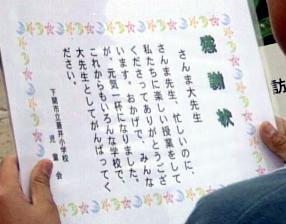 感謝状
さんま大先生
さんま先生、忙しいのに、
私たちに楽しい授業をして
くださってありがとうござ
います。おかげで、みんな
が、元気一杯になりました。
これからもいろんな学校で、
大先生としてがんばってく
ださい。
下関市立
井小学校
児童会
訪